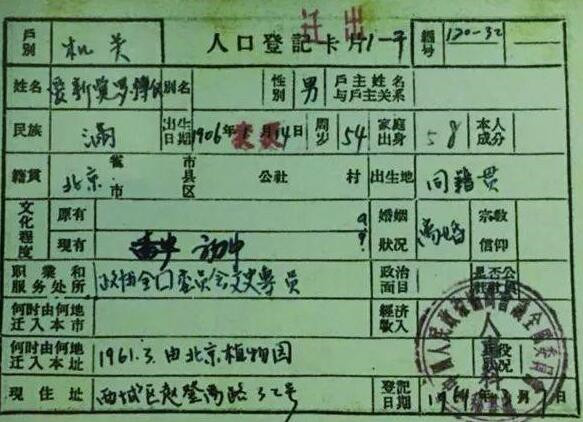 迁出
戶别 机关 人口登記卡片 1-于 編号 120-32
姓名 爱新觉罗 别名 性别 男 戶主姓名与戶主关系
民族 满 出生日期 1906年 月14日 周岁 54 家庭出身 本人成分
籍貫 北京 省市 市县区 公社 村 出生地 同籍贯
文化程度 原有 婚姻狀况 离婚 宗教信仰
現有 初中
职業和服务处所 政协全囗委员会文史專员 政治面目 是否公社社員
何时由何地迁入本市 經济收入
何时由何地迁入本址 1961.3.由北京植物园
現住址 西城区赵登禹路32号 登記日期 1964年 月7日